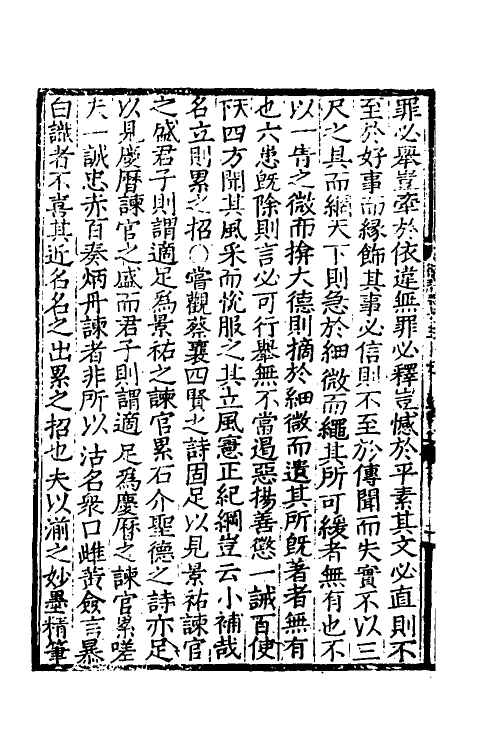 罪必舉豈牽於依違無罪必釋豈憾於平素其文必直則不
至於好事而緣飾其事必信則不至於傳聞而失實不以三
尺之具而綱天下則急於細微而繩其所可緩者無有也不
以一眚之微而揜大德則摘於細微而遺其所旣著者無有
也六患旣除則言必可行舉無不當遏惡揚善懲一誡百使
天下四方聞其風采而恱服之其立風憲正紀綱豈云小補哉
名立則累之招○嘗觀蔡襄四賢之詩固足以見景祐諫官
之盛君子則謂適足爲景祐之諫官累石介聖德之詩亦足
以見慶曆諫官之盛而君子則謂適足爲慶曆之諫官累嗟
夫一誠忠赤百奏炳丹諫者非所以沽名衆口雌黃僉言暴
白識者不喜其近名名之出累之招也夫以湔之妙墨精筆